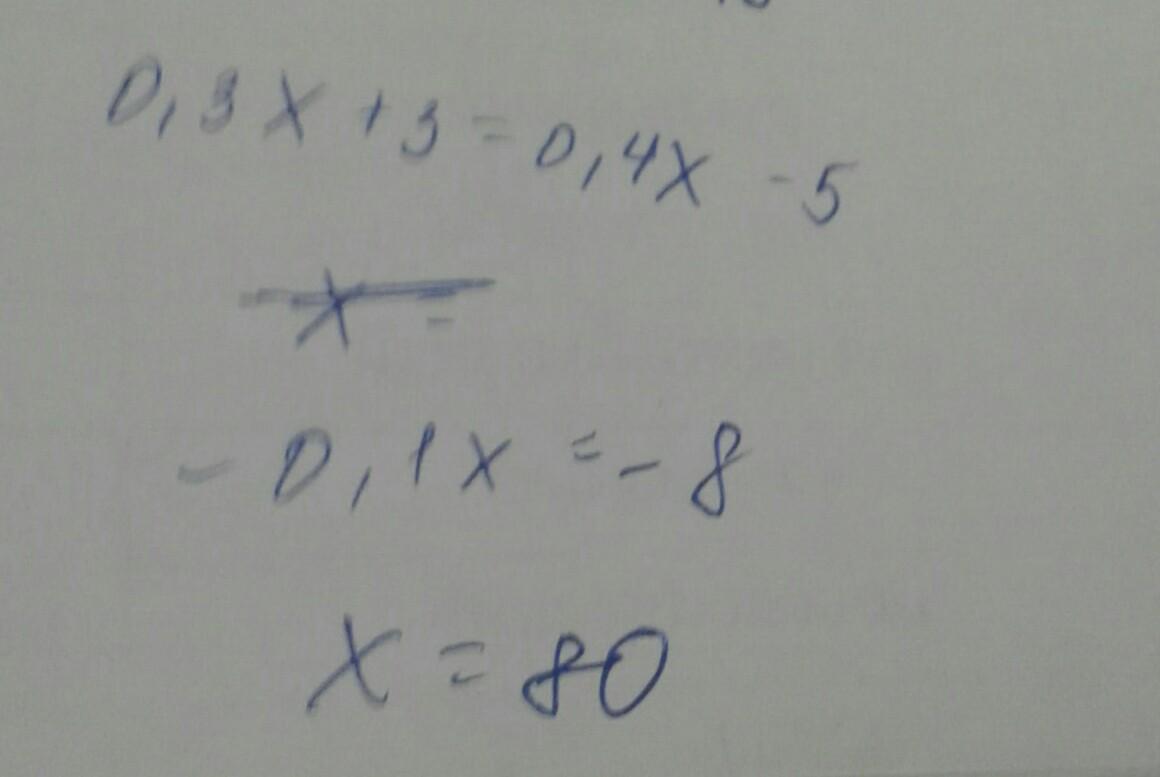 0,3x+3=0,4x-5
x =
-0,1x=-8
x=80